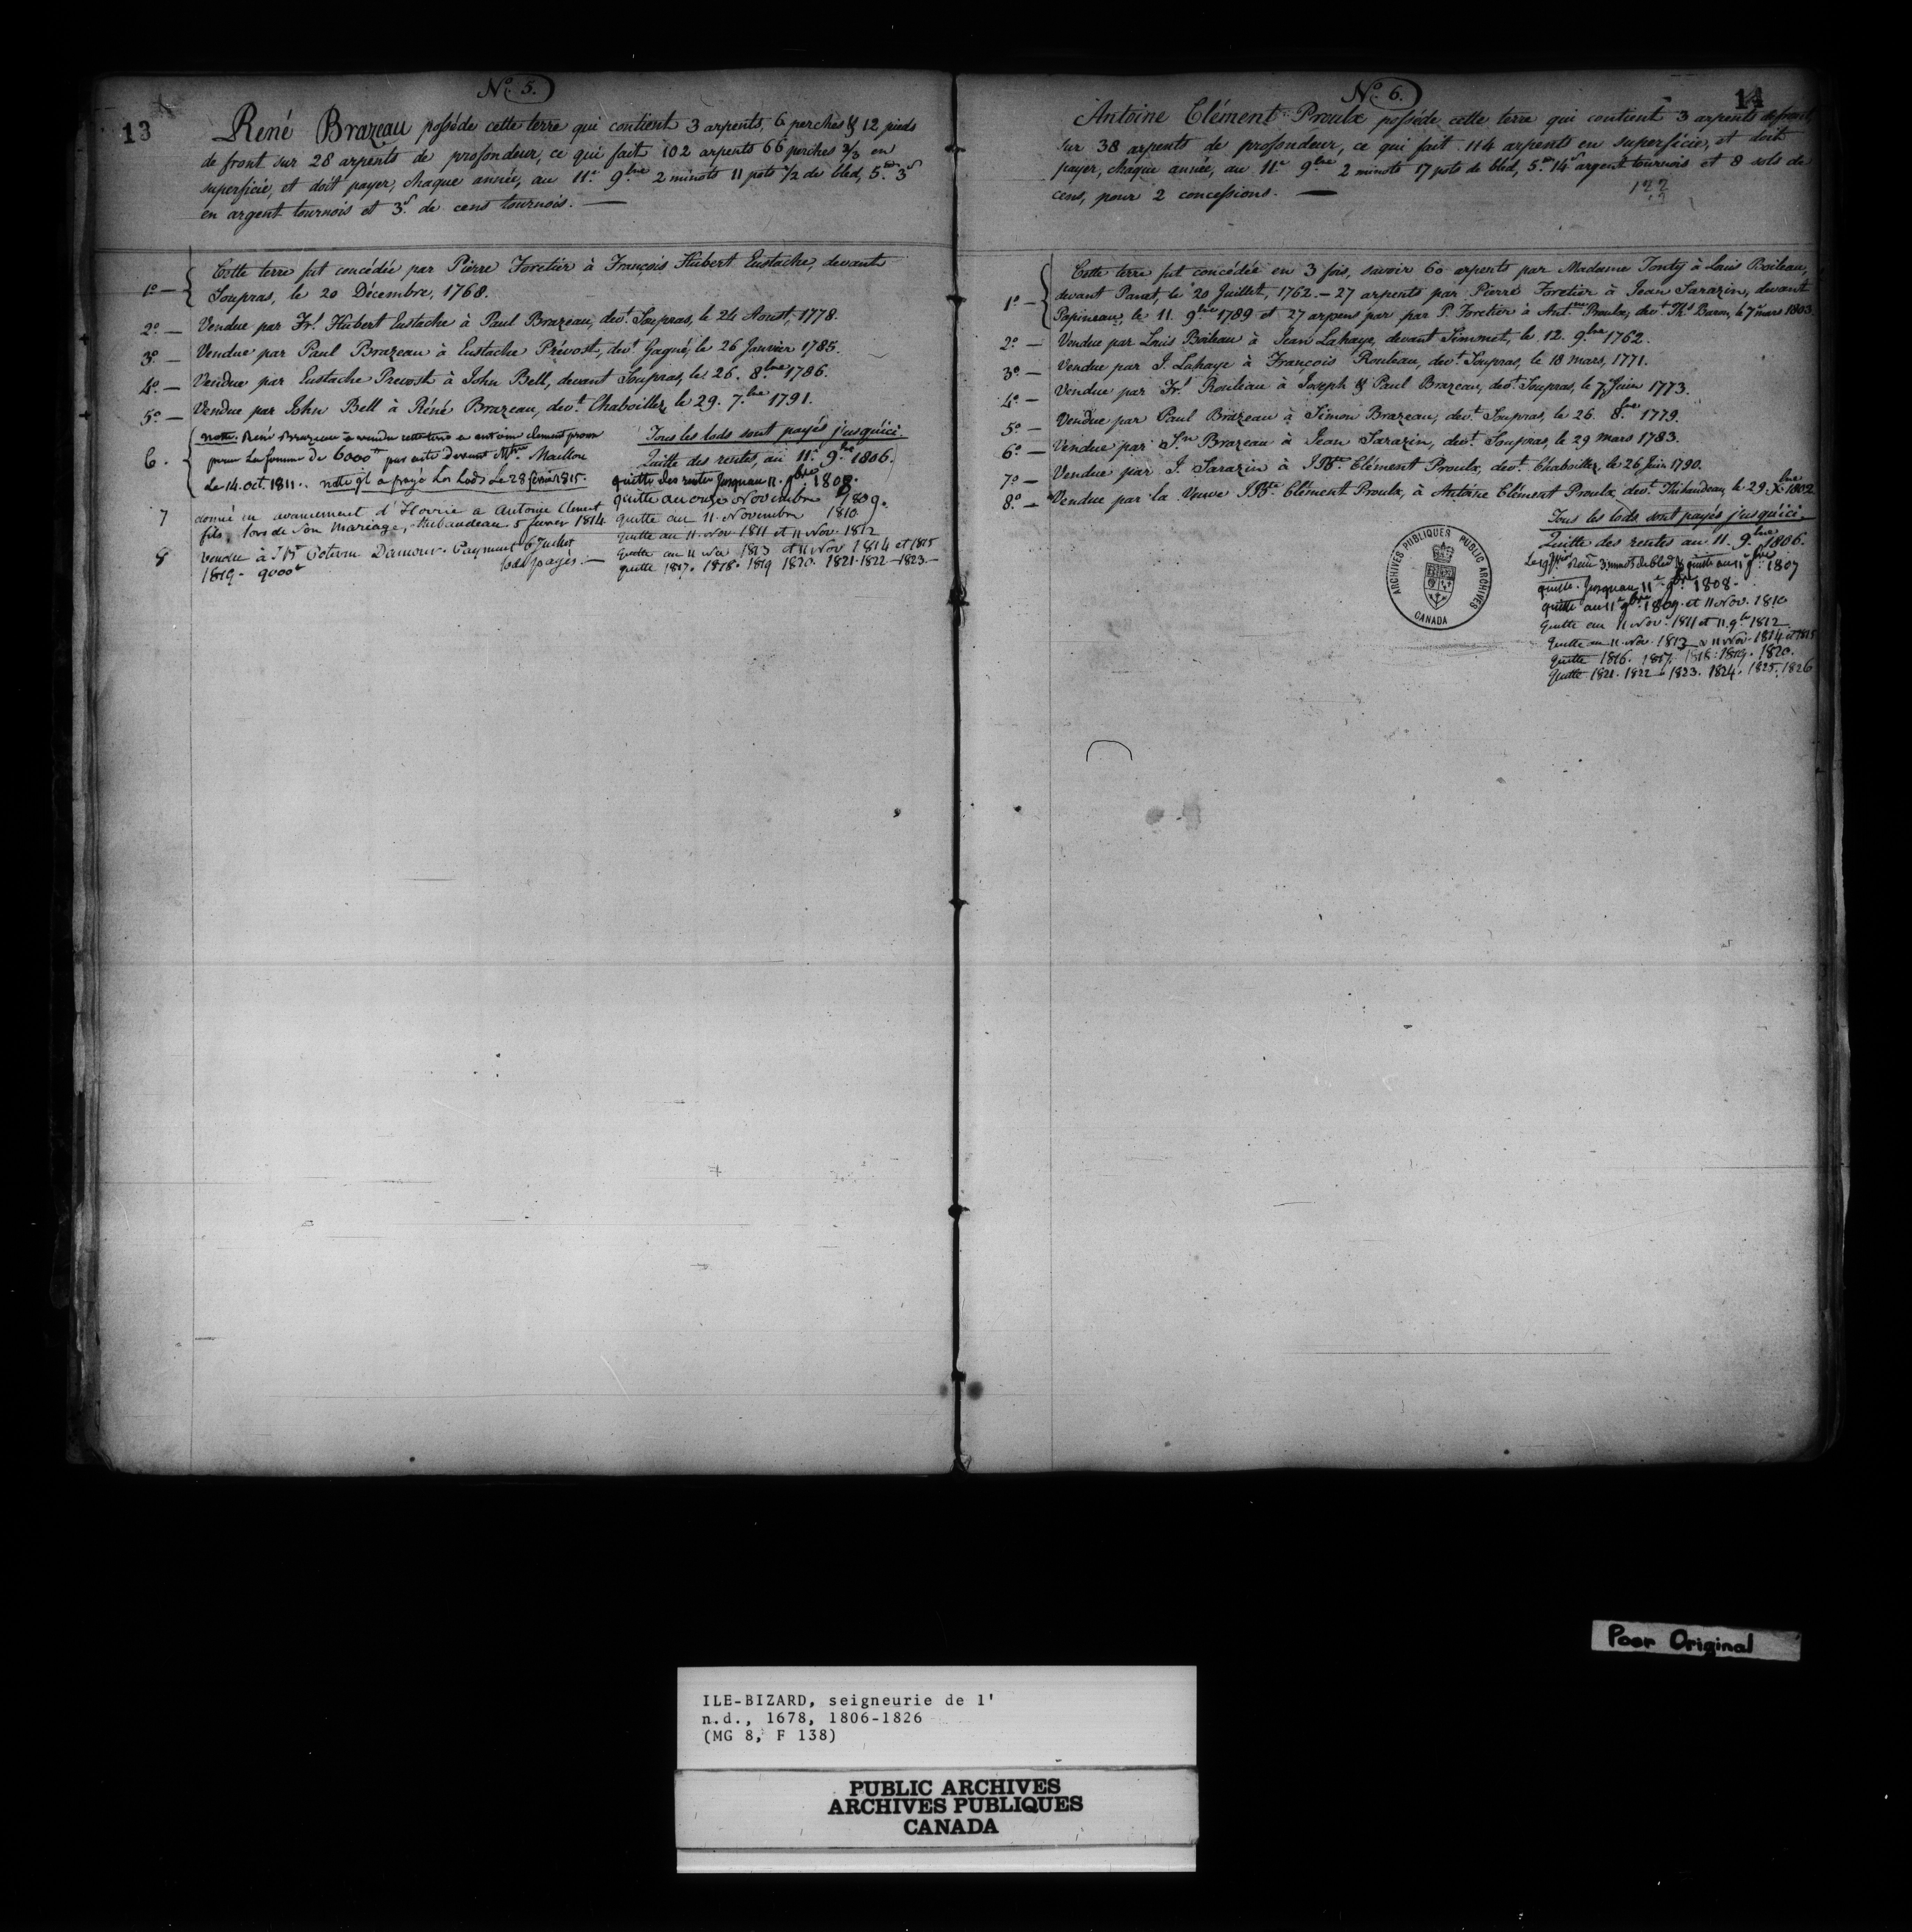 13
No. 5.
René Brazeau possède cette terre qui contient 3 arpents, 6 perches & 12 pieds
de front sur 28 arpents de profondeur, ce qui fait 102 arpents 66 perches 2/3 en
superficie, et doit payer, chaque année, au 11e. 9.bre 2 minots 11 pots 1/2 de bled, 5.# 3s
en argent tournois et 3s. de cens tournois. —
1o — Cette terre fut concédée par Pierre Foretier à François Hubert Eustache, devant
Soupras, le 20 Décembre, 1768.
2o. — Vendue par Frs. Hubert Eustache à Paul Brazeau, devt. Soupras, le 24 Aoust, 1778.
3o. — Vendue par Paul Brazeau à Eustache Prévost, devt. Gagné, le 26 Janvier 1785.
4o. — Vendue par Eustache Prevost à John Bell, devant Soupras, le 26. 8.bre 1786.
5o. — Vendue par John Bell à Réné Brazeau, devt. Chaboillez le 29. 7.bre 1791.
6. notte. René Brazeau a vendu cette terre a antoine clement proux
pour la somme de 6000# par acte devant Mtre. Maillou
Le 14. oct. 1811. notte ql a payé Les Lods Le 28 fevrier 1815.
7 donné en avancement d'Hoirie a Antoine Clement
fils, lors de son mariage, thibaudeau 5 fevrier 1814
8 vendue à J Bte Poterin Damour. Payment 6 Juillet
1819. 9000# lods payés. —
Tous les lods sont payés jusqu'ici.
Quitte des rentes, au 11e. 9.bre 1806.
quitte des rentes Jusquau 11. 9bre 1808.
quitte au onze Novembre 1809.
quitte au 11. Novembre 1810
quitte au 11. Nov. 1811 et 11 Nov. 1812
quitte au 11 Nov 1813 et 11 Nov 1814 et 1815
quitte 1817. 1818. 1819 1820. 1821. 1822 — 1823 —
14
No. 6.
Antoine Clément Proulx possède cette terre qui contient 3 arpents de front,
sur 38 arpents de profondeur, ce qui fait 114 arpents en superficie, et doit
payer, chaque année, au 11e. 9.bre 2 minots 17 pots de bled, 5.# 14s argent tournois et 8 sols de
cens, pour 2 concessions. —
122
1o — Cette terre fut concédée en 3 fois, savoir 60 arpents par Madame Tonty à Louis Boileau,
devant Panet, le 20 Juillet, 1762. — 27 arpents par Pierre Foretier à Jean Sarazin, devant
Papineau, le 11. 9.bre 1789 et 27 arpens par par P. Foretier à Antne. Proulx, devt. Ths. Baron, le 7 mars 1803.
2o. — Vendue par Louis Boileau à Jean Lahaye, devant Simmet, le 12. 9.bre 1762.
3o. — Vendue par J. Lahaye à François Rouleau, devt. Soupras, le 18 mars, 1771.
4o. — Vendue par Frs. Rouleau à Joseph & Paul Brazeau, devt. Soupras, le 7 Juin 1773.
5o — Vendue par Paul Brazeau à Simon Brazeau, devt. Soupras, le 26. 8.bre 1779.
6o — Vendue par Sn. Brazeau à Jean Sarazin, devt. Soupras, le 29 mars 1783.
7o — Vendue par J. Sarazin à J Bte. Clément Proulx, devt. Chaboillez, le 26 Juin 1790.
8o. — Vendue par la Veuve J Bte Clément Proulx, à Antoine Clément Proulx, devt. Thibaudeau, le 29. Xbre 1802
Tous les lods sont payés jusqu'ici.
Quitte des rentes au 11. 9.bre 1806.
3 minots de bled & quitte au 11e 9bre 1807
quitte Jusquau 11e 9bre 1808.
quitte au 11e 9bre 1809. et 11 Nov. 1810
quitte au 11 Nov. 1811 et 11. 9bre 1812
quitte au 11. Nov. 1813 & 11 Nov. 1814 et 1815
quitte 1816. 1817. 1818. 1819. 1820.
quitte 1821. 1822 — 1823. 1824. 1825. 1826
ARCHIVES PUBLIQUES PUBLIC ARCHIVES
CANADA
Poor Original
ILE-BIZARD, seigneurie de l'
n.d., 1678, 1806-1826
(MG 8, F 138)
PUBLIC ARCHIVES
ARCHIVES PUBLIQUES
CANADA